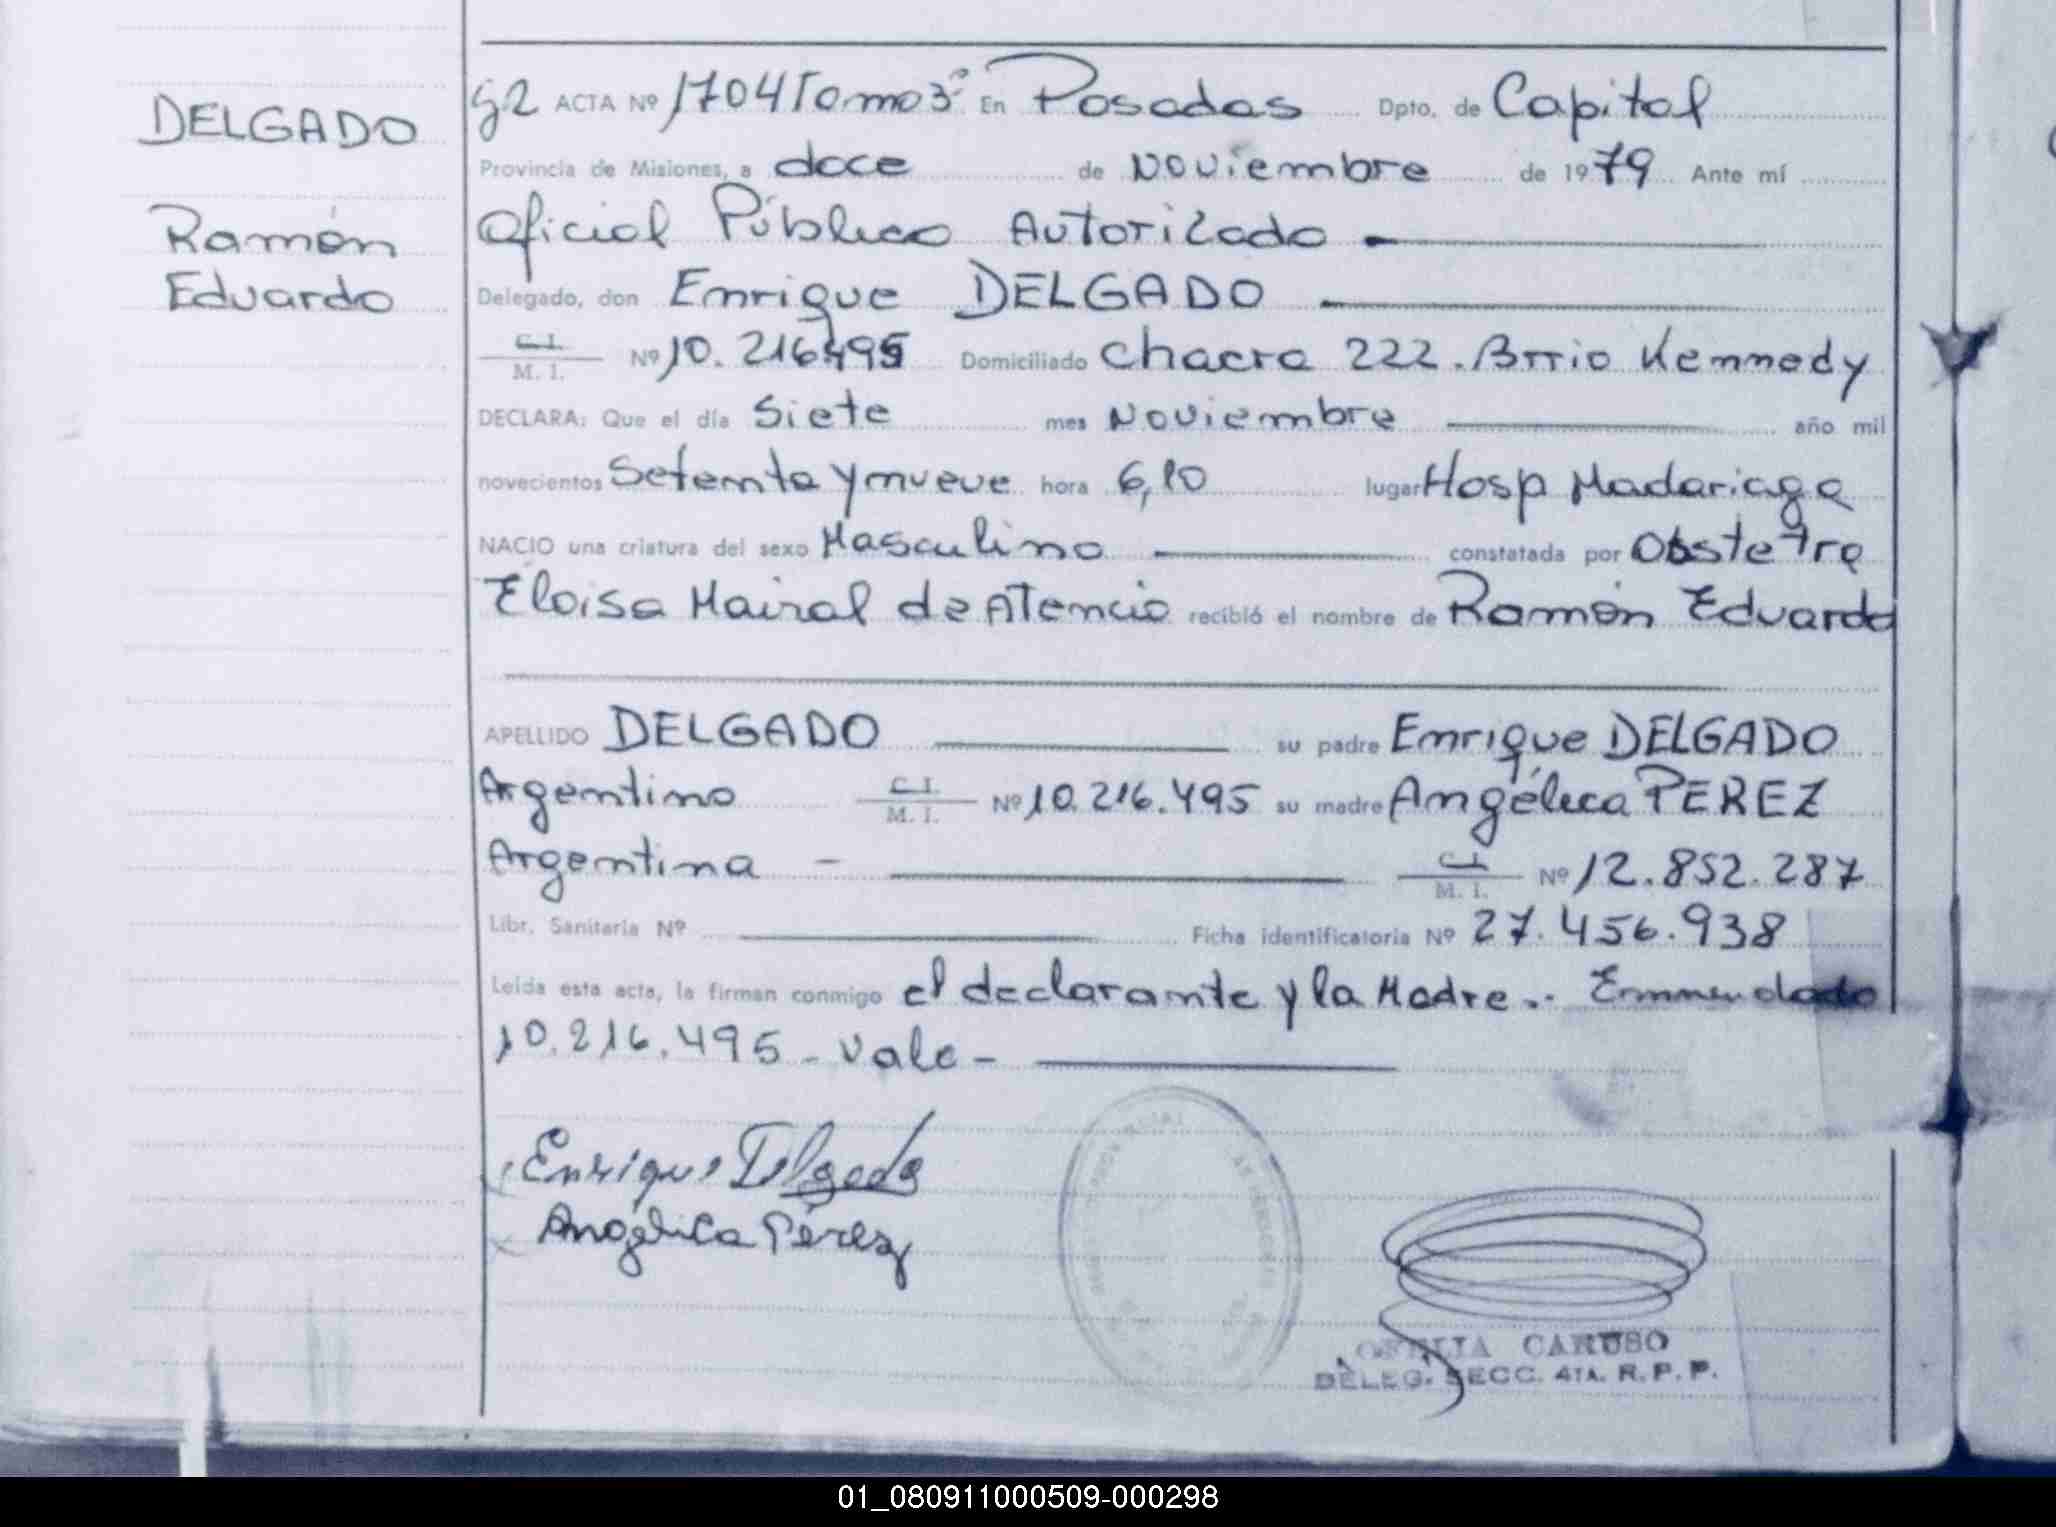 DELGADO
Ramón
Eduardo
ACTA Nº 1704 Tomo 3º En Posadas Dpto. de Capital
Provincia de Misiones, a doce de Noviembre de 1979 Ante mí
Oficial Público Autorizado
Delegado, don Enrique DELGADO
C. I.
M. I. Nº 10.216495 Domiciliado Chacra 222. Brrio Kennedy
DECLARA: Que el día Siete mes Noviembre año mil
novecientos Setenta y nueve hora 6,10 lugar Hosp Madariaga
NACIO una criatura del sexo Masculino constatada por Obstetra
Eloisa Mairal de Atencio recibió el nombre de Ramón Eduardo
APELLIDO DELGADO su padre Enrique DELGADO
Argentino C. I. M. I. Nº 10.216.495 su madre Angélica PEREZ
Argentina - C. I. M. I. Nº 12.852.287
Libr. Sanitaria Nº Ficha identificatoria Nº 27.456.938
Leída esta acta, la firman conmigo el declarante y la Madre.. Enmendado
10.216.495 - Vale -
Enrique Delgado
Angélica Pérez
CARUSO
DELEG. SECC. 4TA. R. P. P.
01_080911000509-000298